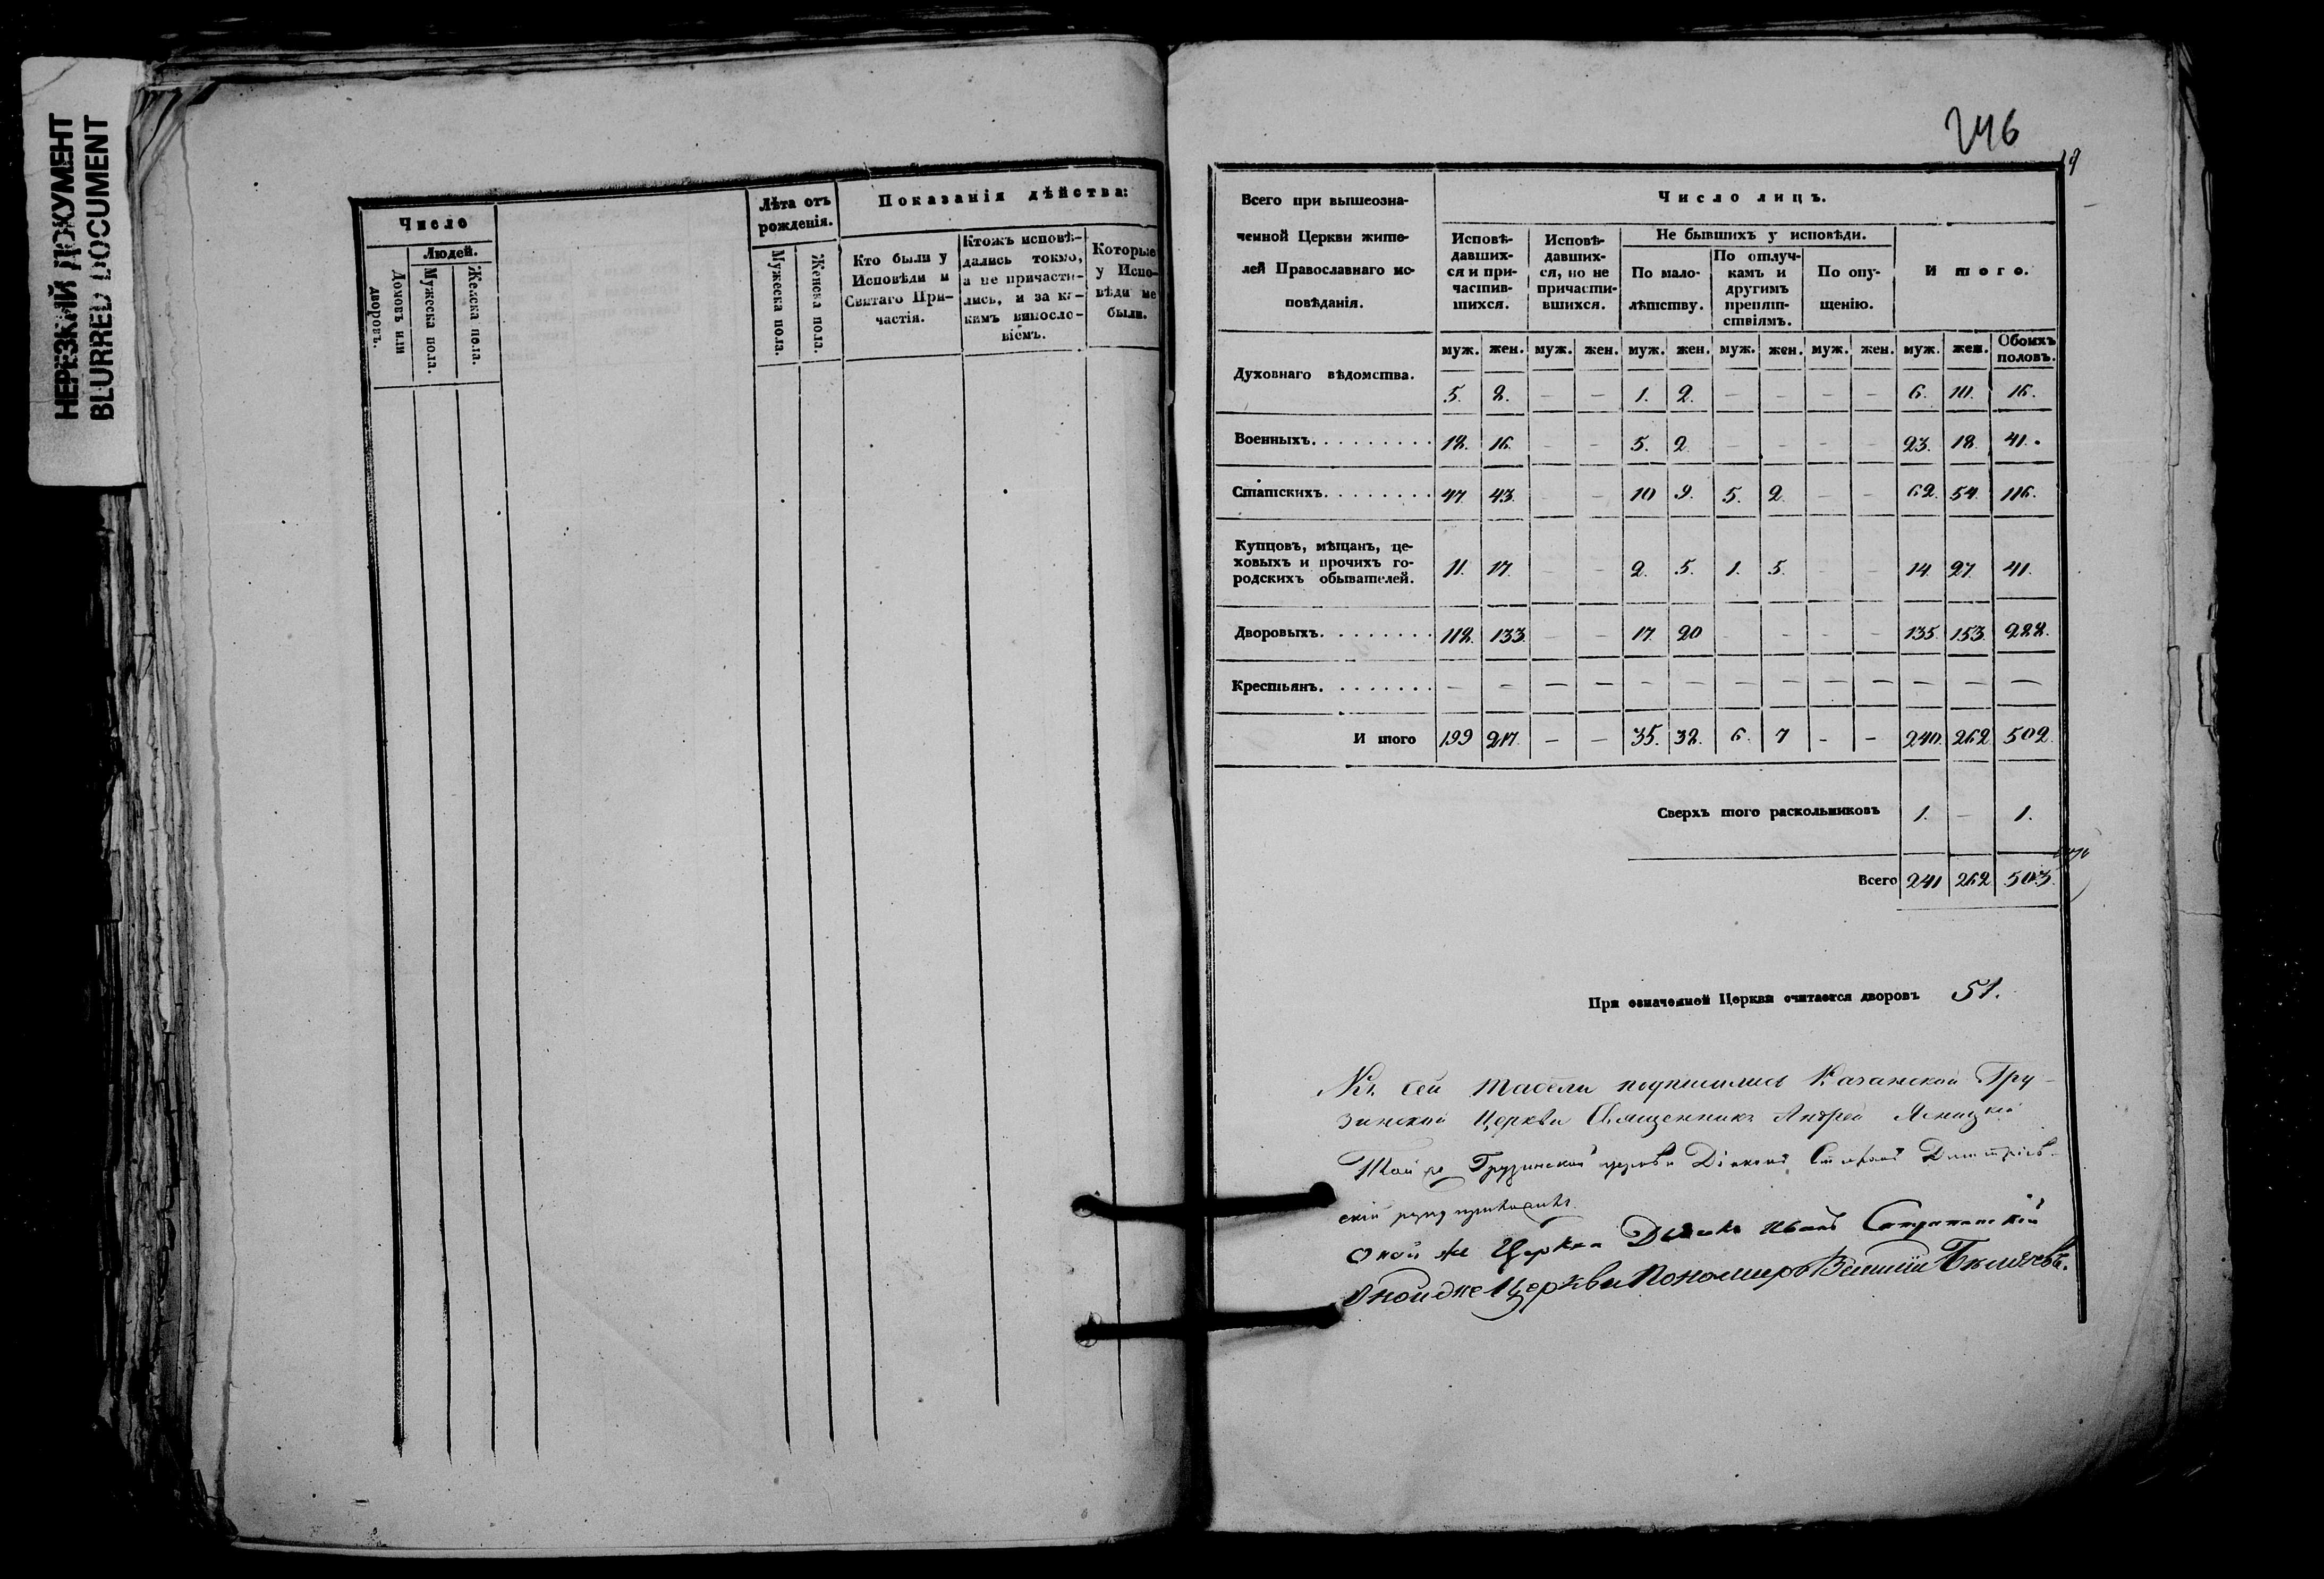 НЕРЕЗКИЙ ДОКУМЕНТ
BLURRED DOCUMENT
Число
Людей.
Домовъ или дворовъ.
Мужеска пола.
Женска пола.
Лѣта отъ
рожденія.
Мужеска пола.
Женска пола.
Показанія дѣйства:
Кто были у
Исповѣди и
Святаго При-
частія.
Ктожъ исповѣ-
дались токмо,
а не причасти-
лись, и за ка-
кимъ винносло-
віемъ.
Которые
у Испо-
вѣди не
были.
246
Всего при вышеозна-
ченной Церкви жите-
лей Православнаго ис-
повѣданія.
Число лицъ.
Исповѣ-
давших-
ся и при-
частив-
шихся.
Исповѣ-
давших-
ся, но не
причасти-
вшихся.
Не бывшихъ у исповѣди.
По мало-
лѣтству.
По отлуч-
камъ и
другимъ
препят-
ствіямъ.
По опу-
щенію.
Итого.
муж. жен. муж. жен. муж. жен. муж. жен. муж. жен. муж. жен. Обоихъ половъ.
Духовнаго вѣдомства. 5. 8. — — 1. 2. — — — — 6. 10. 16.
Военныхъ. 18. 16. — — 5. 2 — — — — 23. 18. 41.
Статскихъ. 47. 43. — — 10 9. 5. 2. — — 62. 54. 116.
Купцовъ, мѣщанъ, це-
ховыхъ и прочихъ го-
родскихъ обывателей. 11. 17. — — 2. 5. 1. 5. — — 14. 27. 41.
Дворовыхъ. 118. 133. — — 17. 20 — — — — 135. 153. 288.
Крестьянъ. — — — — — — — — — — — — —
Итого 199 217. — — 35. 38. 6. 7 — — 240. 262. 502.
Сверхъ того раскольниковъ 1. — 1.
Всего 241 262 503.
При означенной Церкви считается дворовъ 51.
Къ сей табели подписались Казанской Гру-
зинской Церкви Священникъ Андрей Ясницкій
Той же Грузинской церкви Діаконъ
скій руку приложилъ.
Оной же Церкви Дьячекъ Иванъ
Оной же Церкви Пономарь Василій